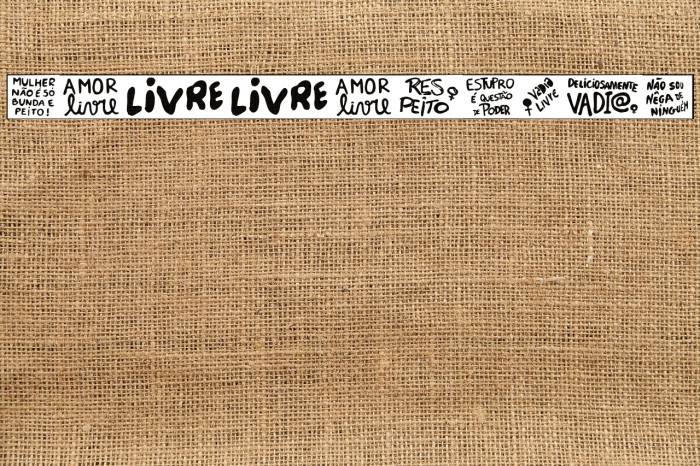 MULHER
NÃO É SÓ
BUNDA E
PEITO!
AMOR
livre
LIVRE LIVRE
AMOR
livre
RES
PEITO
ESTUPRO
É QUESTÃO
DE PODER
VADIA
LIVRE
DELICIOSAMENTE
VADI@
NÃO SOU
NÊGA DE
NINGUÉM